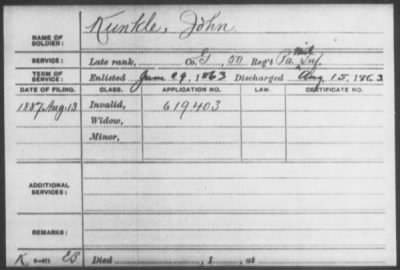 NAME OF SOLDIER: Kunkle, John
SERVICE: Late rank, Co. G, 50 Reg't Pa. Mil Inf.
TERM OF SERVICE: Enlisted June 29, 1863 Discharged Aug 15, 1863
DATE OF FILING. CLASS. APPLICATION NO. LAW. CERTIFICATE NO.
1887 Aug. 13 Invalid, 619403
Widow,
Minor,
ADDITIONAL SERVICES:
REMARKS:
K EB Died , 1 , at